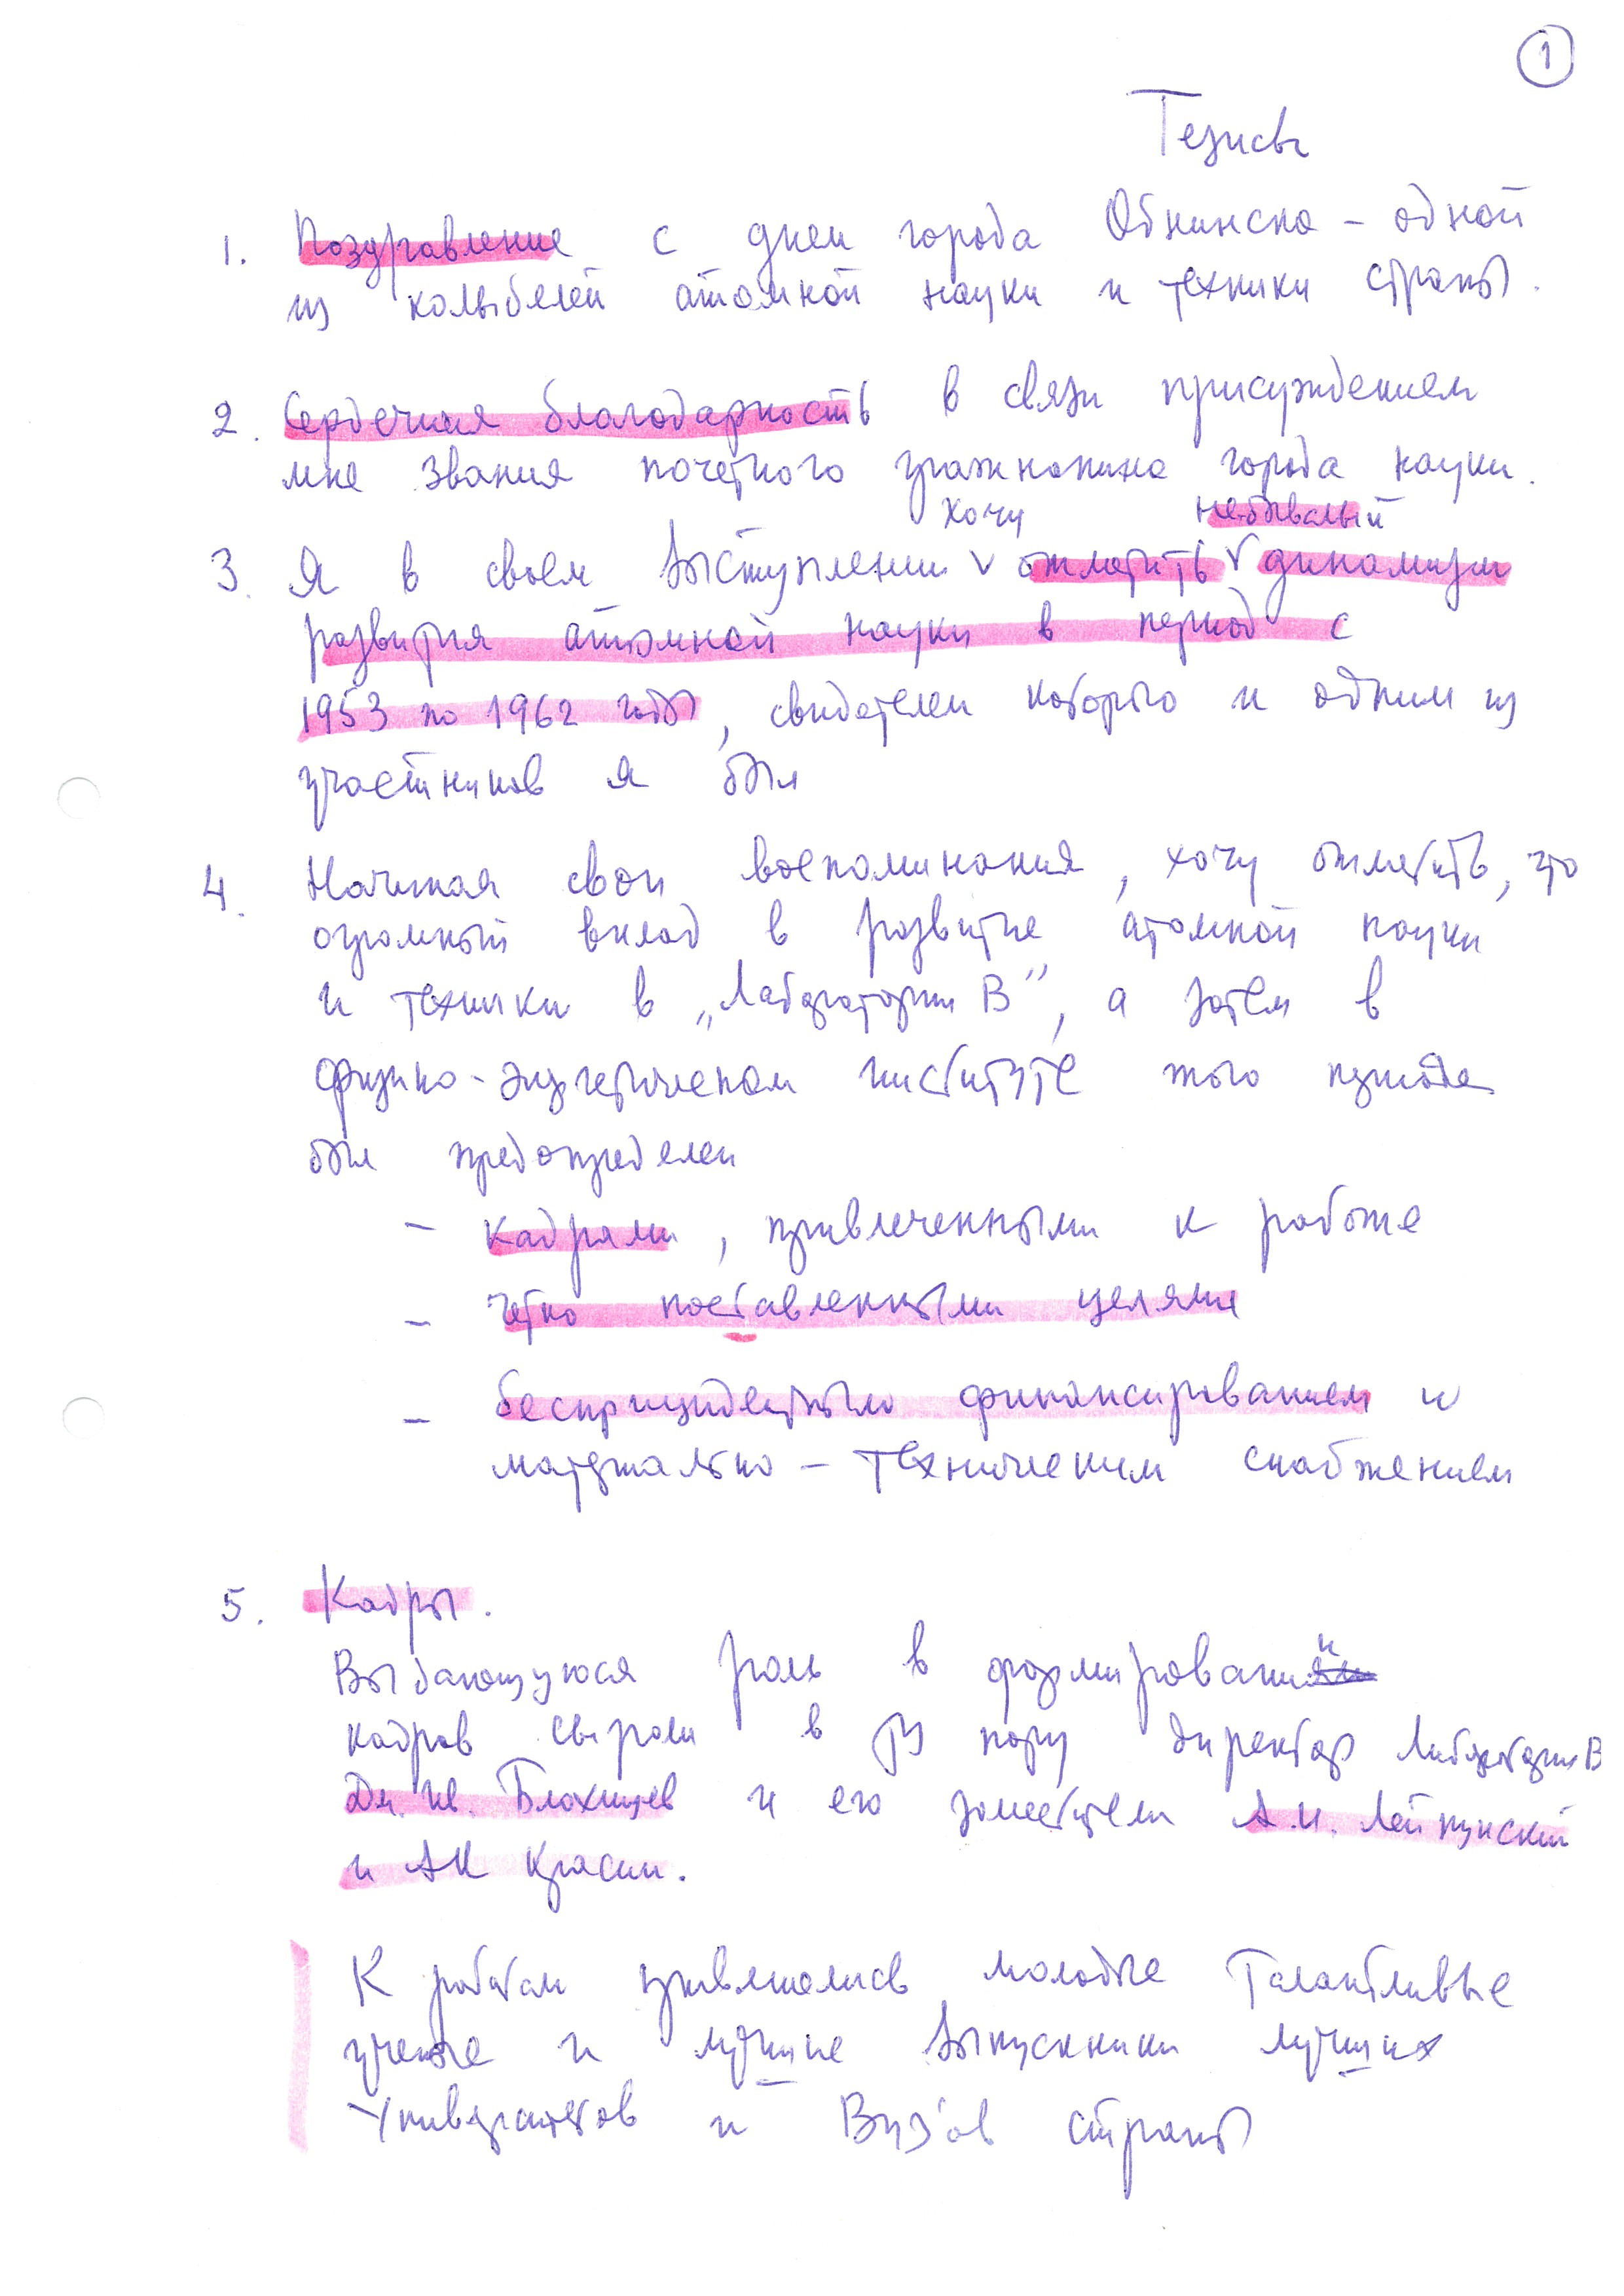 1
Тезисы
1. Поздравление с днем города Обнинска – одной
из колыбелей атомной науки и техники страны.
2. Сердечная благодарность в связи присуждением
мне звания почетного гражданина города науки.
хочу небывалый
3. Я в своем выступлении v отметить v динамизм
развития атомной науки в период с
1953 по 1962 годы, свидетелем которого и одним из
участников я был
4. Начиная свои воспоминания, хочу отметить, что
огромный вклад в развитие атомной науки
и техники в „Лаборатории В”, а затем в
физико-энергетическом институте того периода
был предопределен
– кадрами, привлеченными к работе
– четко поставленными целями
– беспрецидентным финансированием и
материально – техническим снабжением
5. Кадры.
Выдающуюся роль в формировании
кадров сыграли в ту пору директор Лаборатории В
Дм. Ив. Блохинцев и его заместители А.И. Лейпунский
и АК Красин.
К работам привлекались молодые талантливые
ученые и лучшие выпускники лучших
Университетов и Вуз'ов страны